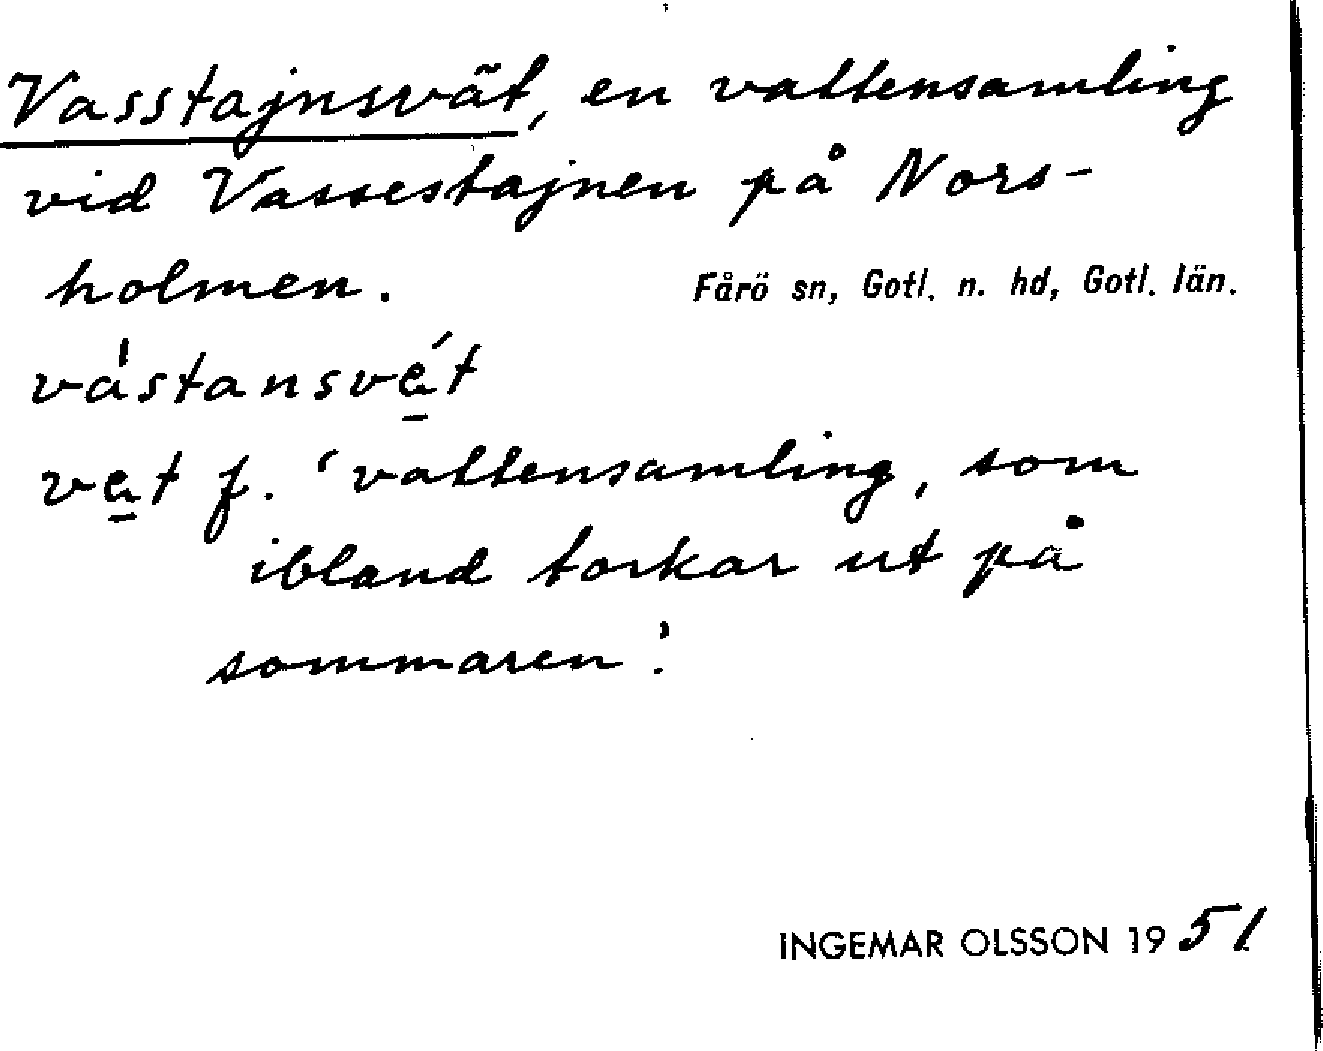 Vasstajnsvät, en vattensamling
vid Vassestajnen på Nors-
holmen.
Fårö sn, Gotl. n. hd, Gotl. län.
vástansvé̱t
ve̱t f. 'vattensamling, som
ibland torkar ut på
sommaren'.
INGEMAR OLSSON 1951